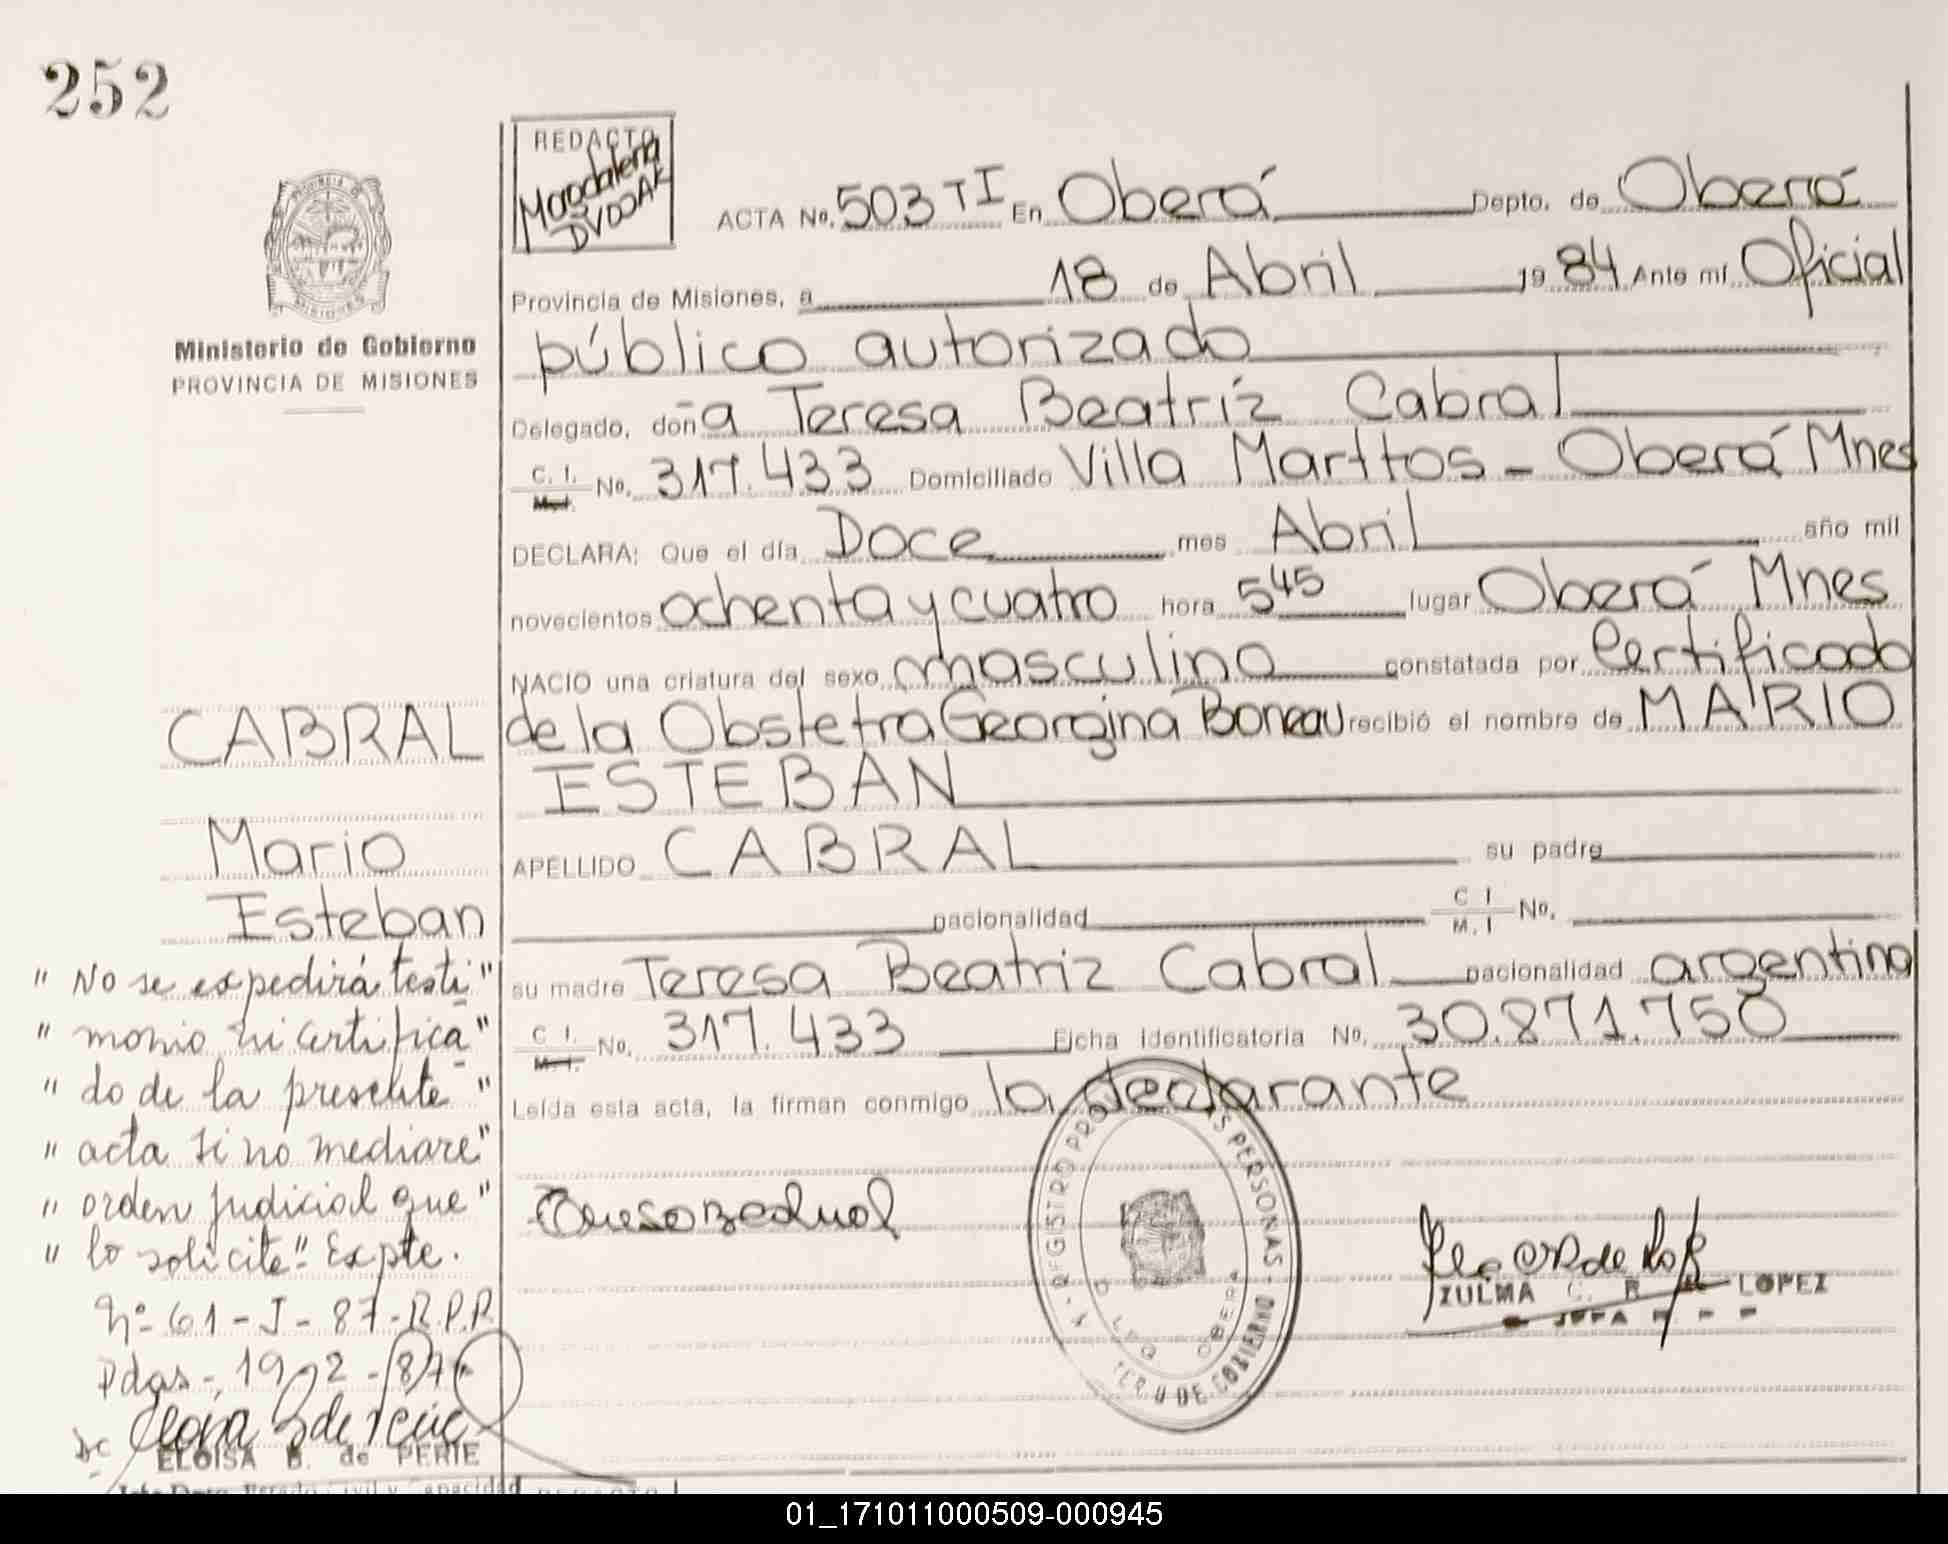 252
REDACTO
Magdalena
DVOJAK
ACTA No. 503 TI En Oberá Depto. de Oberá
Provincia de Misiones, a 18 de Abril 19 84 Ante mí Oficial
público autorizado
Delegado, doña Teresa Beatríz Cabral
C. I. M.I. No. 317.433 Domiciliado Villa Marttos - Oberá Mnes
DECLARA; Que el día Doce mes Abril año mil
novecientos ochenta y cuatro hora 5 45 lugar Oberá Mnes
NACIO una criatura del sexo masculino constatada por Certificado
de la Obstetra Georgina Boneau recibió el nombre de MARIO
ESTEBAN
APELLIDO CABRAL su padre
nacionalidad C I M. I No.
su madre Teresa Beatriz Cabral nacionalidad argentina
C I. M.I. No. 317.433 Ficha Identificatoria No. 30.871.750
Leída esta acta, la firman conmigo la declarante
REGISTRO PERSONAS
OBERA
DE GOBIERNO
ZULMA C. LOPEZ
JEFA
Ministerio de Gobierno
PROVINCIA DE MISIONES
CABRAL
Mario
Esteban
" No se expedirá testi"
" monio ni certifica"
" do de la presente "
" acta si no mediare"
" orden judicial que"
" lo solicite". Expte.
Nº 61 - J - 87 - R.P.P.
Pdas -,
ELOISA B. de PERIE
01_171011000509-000945